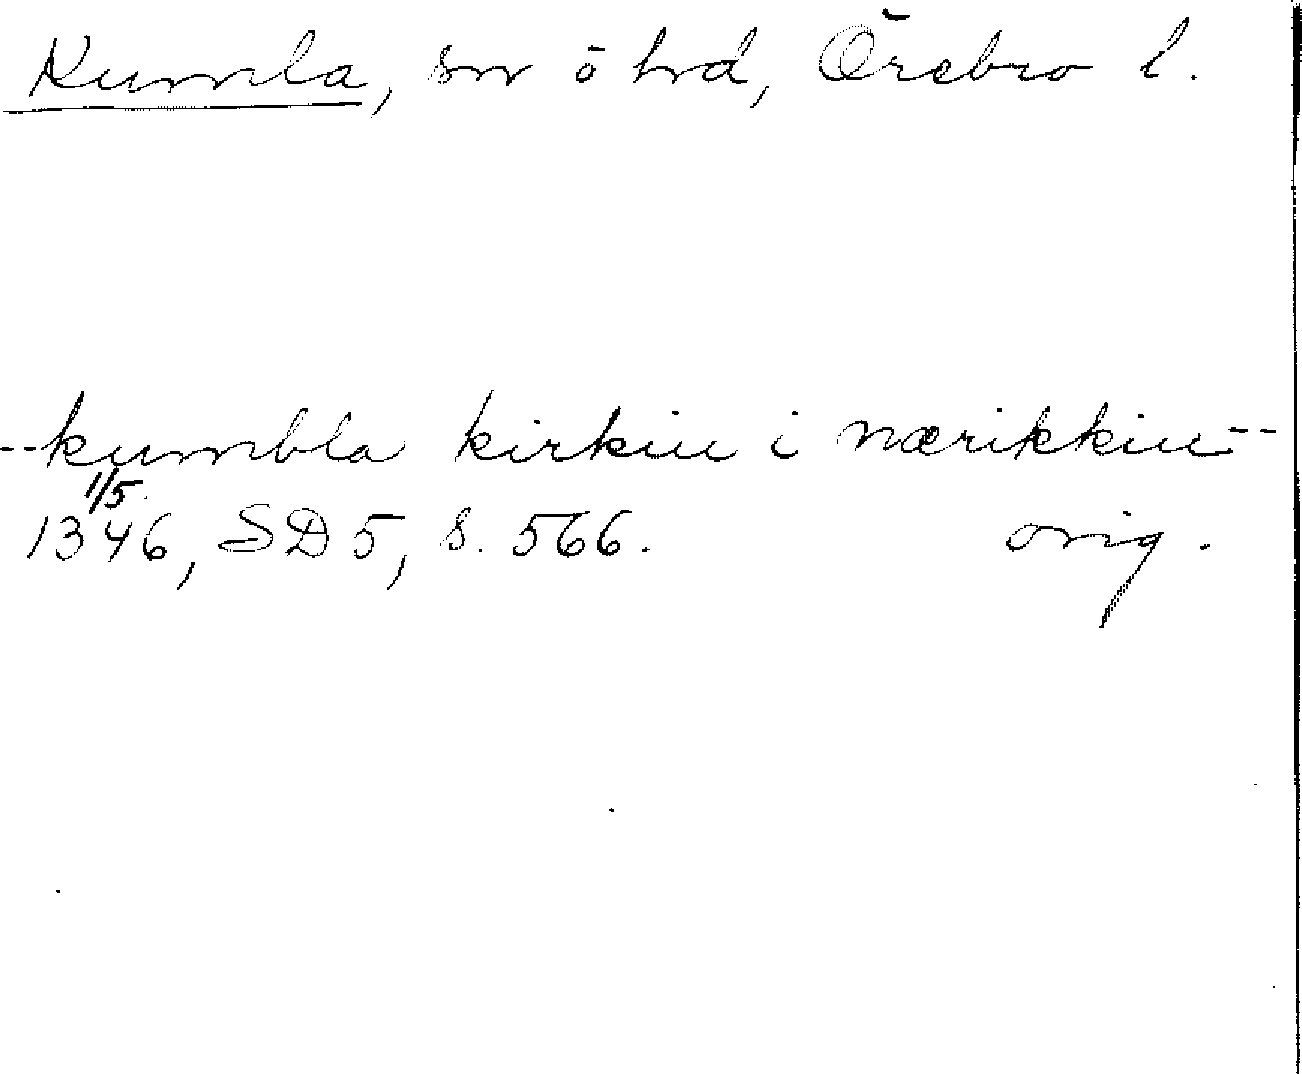 Kumla, sn o hd, Örebro l.
--kumbla kirkiu i nærikkiu--
1/5
1346, SD 5, s. 566. orig.